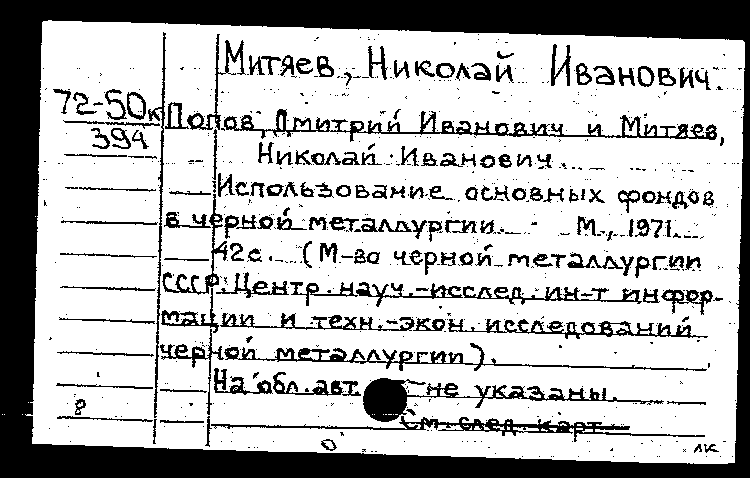 Митяев, Николай Иванович.
72-50к
394
Попов, Дмитрий Иванович и Митяев,
Николай Иванович.
Использование основных фондов
в черной металлургии. М., 1971.
42с. (М-во черной металлургии
СССР. Центр. науч.-исслед. ин-т инфор-
мации и техн.-экон. исследований
черной металлургии).
На обл. авт. не указаны.
См. след. карт.
8
лк